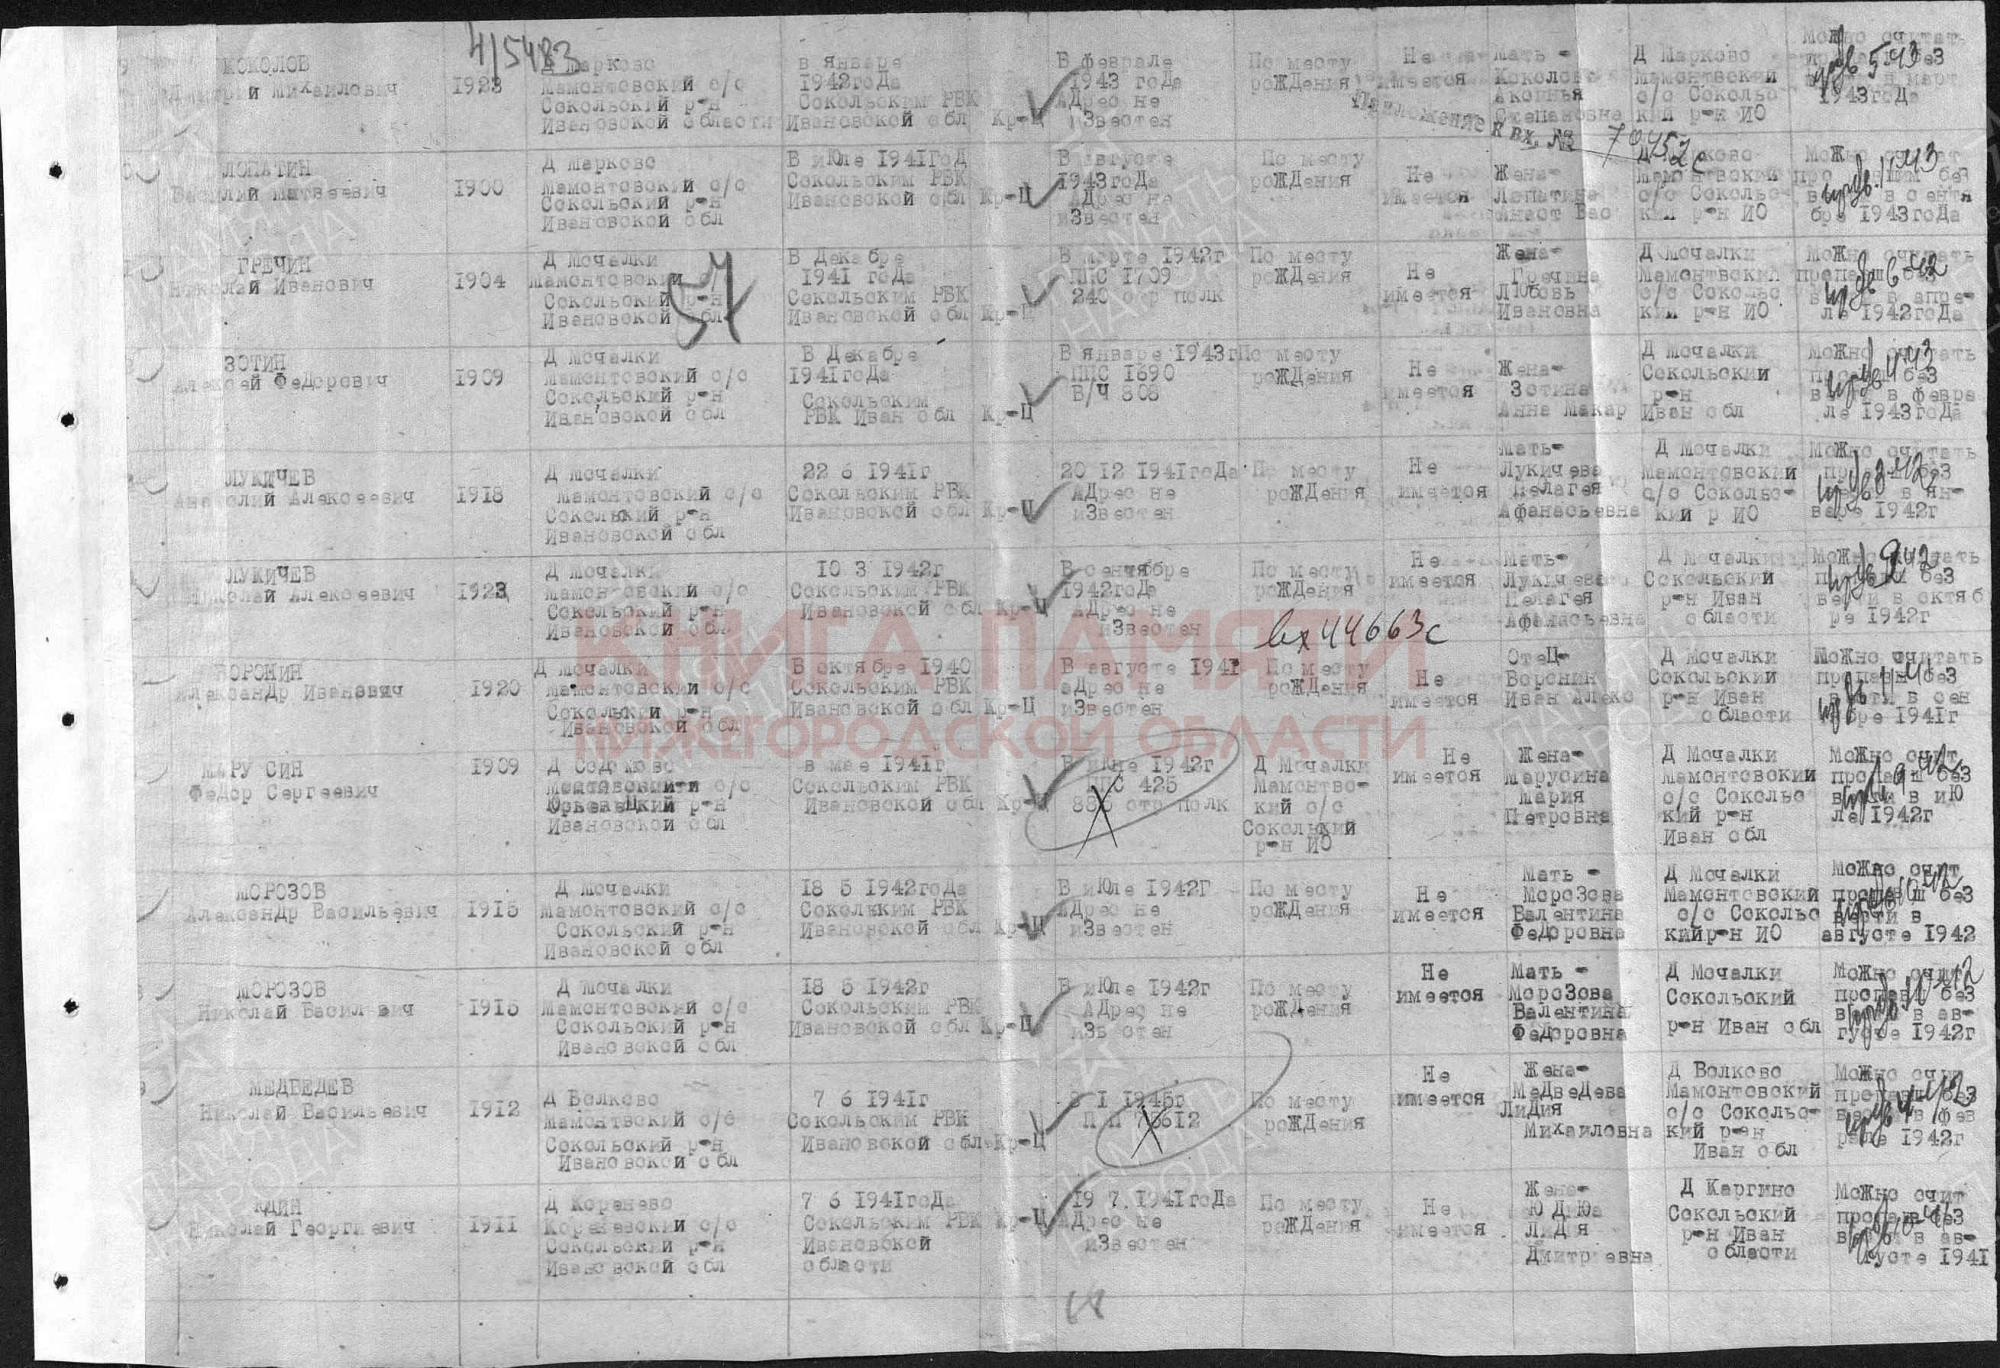 4/5483
МОКОЛОВ
Дмитрий Михаилович 1923
Д Марково
Мамонтовский с/с
Сокольский р-н
Ивановской области
в январе
1942 года
Сокольским РВК
Ивановской обл Кр-Ц
В феврале
1943 года
Адрес не
известен
По месту
рождения
Не
имеется
Мать -
Коколова
Аксинья
Степановна
Д Марково
Мамонтвский
с/с Соколь
кий р-н ИО
Можно считат
1943 года
Приложение к вх. №
70452с
ЛОПАТИН
Василий Матвеевич 1900
Д Марково
Мамонтовский с/с
Сокольский р-н
Ивановской обл
В июле 1941год
Сокольским РВК
Ивановской обл Кр-Ц
В августе
1943года
Адрес не
известен
По месту
рождения
Не
имеется
Жена-
Лопатина
Анаст Вас
Д Марково
Мамонтвский
с/с Сокольс-
кий р-н ИО
Можно считат
бре 1943года
ГРЕЧИН
Николай Иванович 1904
Д Мочалки
Мамонтовский с/с
Сокольский р-н
Ивановской обл
57
В Декабре
1941 года
Сокольским РВК
Ивановской обл Кр-Ц
В марте 1942г
ППС 1709
240 стр полк
По месту
рождения
Не
имеется
Жена-
Гречина
Любовь
Ивановна
Д Мочалки
Мамонтвский
с/с Сокольс
кий р-н ИО
Можно считать
в апре-
ле 1942года
ЗОТИН
Алексей Федорович 1909
Д Мочалки
Мамонтовский с/с
Сокольский р-н
Ивановской обл
В Декабре
1941года
Сокольским
РВК Иван обл Кр-Ц
В январе 1943г
ППС 1690
В/Ч 808
По месту
рождения
Не
имеется
Жена-
Зотина
Анна Макар
Д Мочалки
Сокольский
р-н
Иван обл
Можно считать
в февра
ле 1943года
ЛУКИЧЕВ
Анатолий Алексеевич 1918
Д Мочалки
Мамонтовский с/с
Сокольский р-н
Ивановской обл
22 6 1941г
Сокольским РВК
Ивановской обл Кр-Ц
20 12 1941года
Адрес не
известен
По месту
рождения
Не
имеется
Мать-
Лукичева
Пелагея
Афанасьевна
Д Мочалки
Мамонтовский
с/с Сокольс-
кий р ИО
Можно считать
в ян-
варе 1942г
ЛУКИЧЕВ
Николай Алексеевич 1923
Д Мочалки
Мамонтовский с/с
Сокольский р-н
Ивановской обл
10 3 1942г
Сокольским РВК
Ивановской обл Кр-Ц
В сентябре
1942года
Адрес не
известен
По месту
рождения
вх44663с
Не
имеется
Мать-
Лукичева
Пелагея
Афанасьевна
Д Мочалки
Сокольский
р-н Иван
области
Можно считать
в октяб
ре 1942г
ВОРОНИН
Александр Иванович 1920
Д Мочалки
Мамонтовский с/с
Сокольский р-н
Ивановской обл
В октябре 1940
Сокольским РВК
Ивановской обл Кр-Ц
В августе 1941
адрес не
известен
По месту
рождения
Не
имеется
Отец-
Воронин
Иван Алекс
Д Мочалки
Сокольский
р-н Иван
области
Можно считать
в сен
бре 1941г
МАРУСИН
Федор Сергеевич
1909
Д Содомово
с/с
р-н
Ивановской обл
в мае 1941г
Сокольским РВК
Ивановской обл Кр-Ц
В июне 1942г
ППС 425
885 стр полк
Д Мочалки
Мамонтво-
кий с/с
Сокольский
р-н ИО
Не
имеется
Жена-
Марусина
Мария
Петровна
Д Мочалки
Мамонтовский
с/с Сокольс
кий р-н
Иван обл
Можно счит
в ию
ле 1942г
МОРОЗОВ
Александр Васильевич 1915
Д Мочалки
Мамонтовский с/с
Сокольский р-н
Ивановской обл
18 5 1942года
Сокольким РВК
Ивановской обл Кр-Ц
В июле 1942г
Адрес не
известен
По месту
рождения
Не
имеется
Мать -
Морозова
Валентина
Федоровна
Д Мочалки
Мамонтовский
с/с Сокольс
кийр-н ИО
Можно счит
вести в
августе 1942
МОРОЗОВ
Николай Васильевич 1915
Д Мочалки
Мамонтовский с/с
Сокольский р-н
Ивановской обл
18 5 1942г
Сокольским РВК
Ивановской обл Кр-Ц
В июле 1942г
Адрес не
известен
По месту
рождения
Не
имеется
Мать -
Морозова
Валентина
Федоровна
Д Мочалки
Сокольский
р-н Иван обл
Можно счит
в ав-
густе 1942г
МЕДВЕДЕВ
Николай Васильевич 1912
Д Волково
Мамонтвский с/с
Сокольский р-н
Ивановской обл
7 6 1941г
Сокольским РВК
Ивановской обл Кр-Ц
1 1945г
По месту
рождения
Не
имеется
Жена-
Медведева
Лидия
Михаиловна
Д Волково
Мамонтовский
с/с Сокольс-
кий р-н
Иван обл
Можно счит
в фев
рале 1942г
ЮДИН
Николай Георгиевич 1911
Д Коренево
Кореневский с/с
Сокольский р-н
Ивановской обл
7 6 1941года
Сокольским РВК Кр-Ц
Ивановской
области
19 7 1941года
Адрес не
известен
По месту
рождения
Не
имеется
Жена-
Юдиюа
Лидия
Дмитриевна
Д Каргино
Сокольский
р-н Иван
области
Можно счит
в ав-
густе 1941
КНИГА ПАМЯТИ
НИЖЕГОРОДСКОЙ ОБЛАСТИ
ПАМЯТЬ НАРОДА